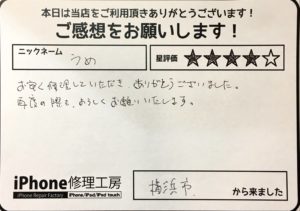 本日は当店をご利用頂きありがとうございます！
ご感想をお願いします！
ニックネーム
うめ
星評価 ★★★★☆
お安く修理していただき、ありがとうございました。
再度の際も、よろしくお願いいたします。
iPhone修理工房
iPhone Repair Factory iPhone/iPad/iPod touch
横浜市 から来ました